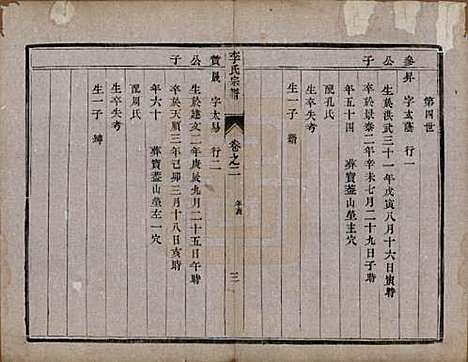 第四世
參昇 字太蔭 行一
公 生於洪武三十一年戊寅八月十六日寅時
子 卒於景泰二年辛未七月二十九日子時
年五十四 葬寶蓋山堂穴
配孔氏
生卒失考
生一子
李氏宗譜 卷之二 年表 三
贊晟 字太易 行二
公 生於建文二年庚辰九月二十五日午時
子 卒於天順三年己卯三月十八日亥時
年六十 葬寶蓋山堂左一穴
配周氏
生卒失考
生一子 坤